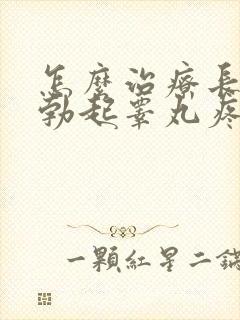 怎麼治療長
勃起睪丸疼
一顆紅星二鍋